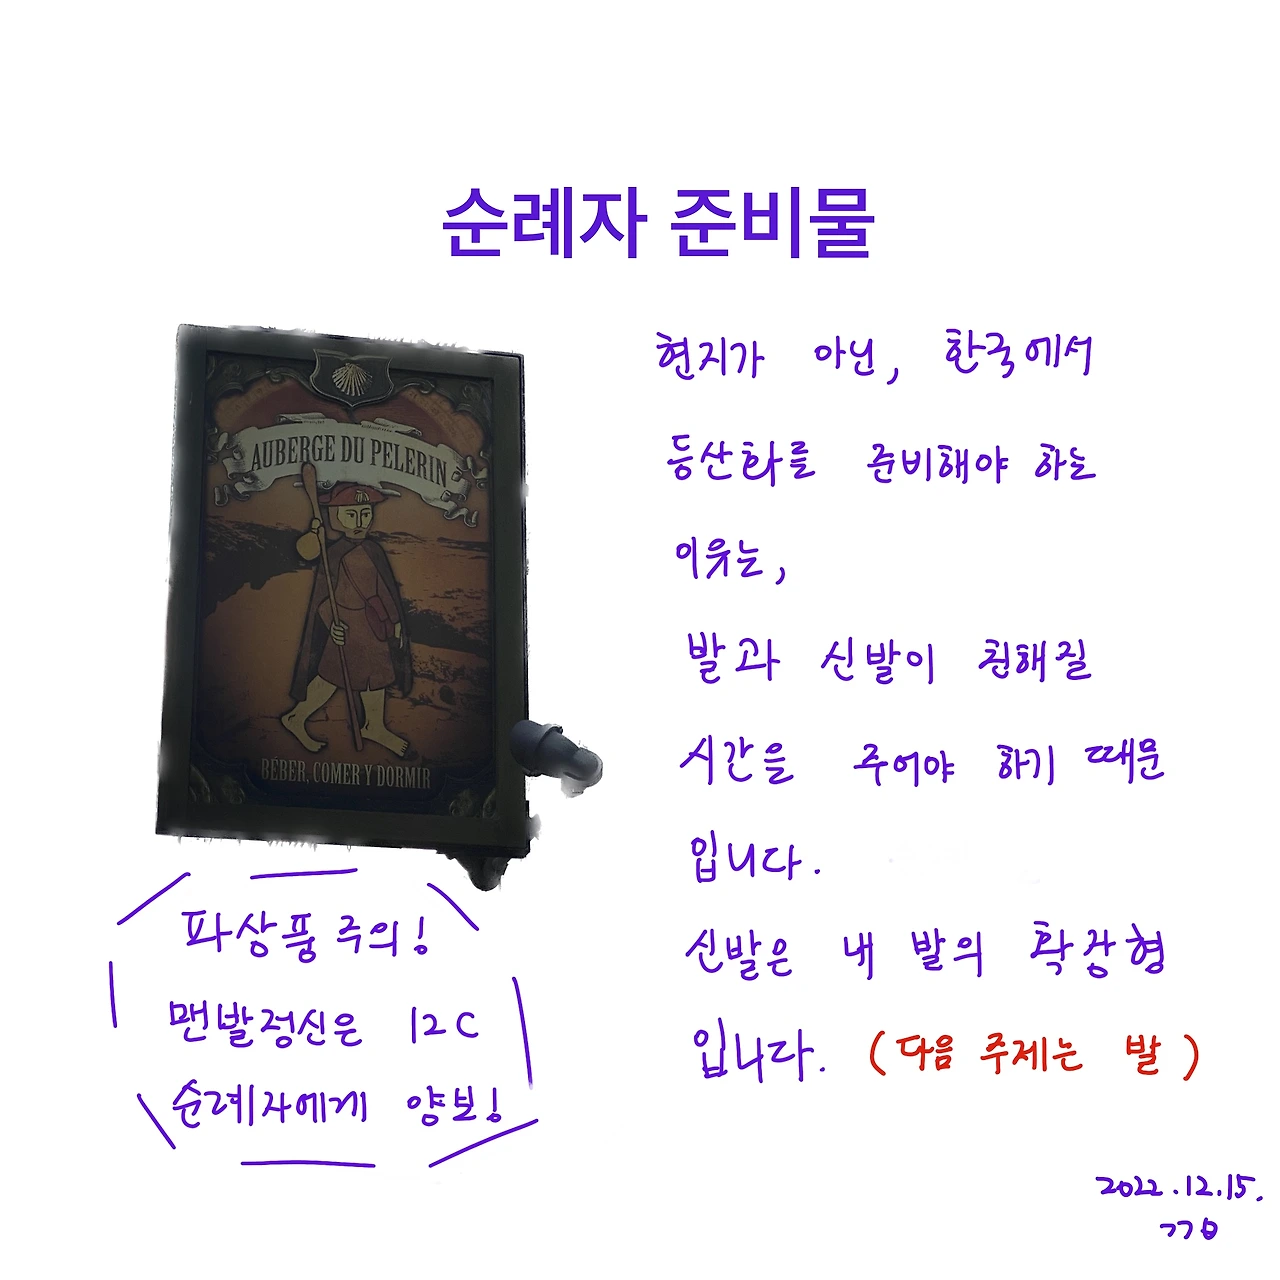 순례자 준비물
AUBERGE DU PELERIN
BÉBER, COMER Y DORMIR
파상풍 주의!
맨발정신은 12C
순례자에게 양보!
현지가 아닌, 한국에서
등산화를 준비해야 하는
이유는,
발과 신발이 친해질
시간을 주어야 하기 때문
입니다.
신발은 내 발의 확장형
입니다. (다음 주제는 발)
2022.12.15.
ㄱㄱㅎ